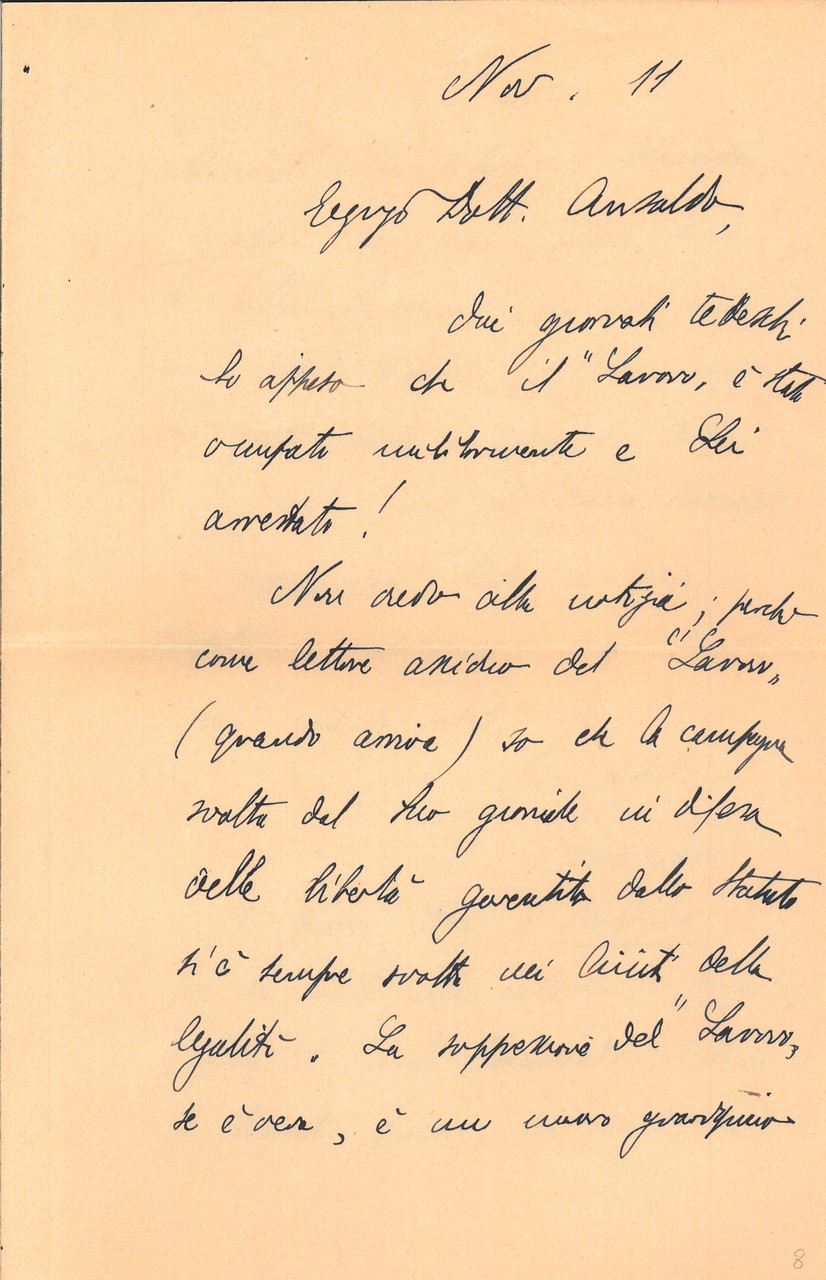 Nov. 11
Egregio Dott. Ansaldo,
dai giornali tedeschi
ho appreso che il "Lavoro" è stato
occupato militarmente e Lei
arrestato!
Non credo alla notizia; perche
come lettore assiduo del "Lavoro"
(quando arriva) so che la campagna
svolta dal Suo giornale in difesa
delle libertà garantite dallo Statuto
si è sempre svolta nei limiti della
legalità. La soppressione del "Lavoro"
se è vera, è un nuovo
8